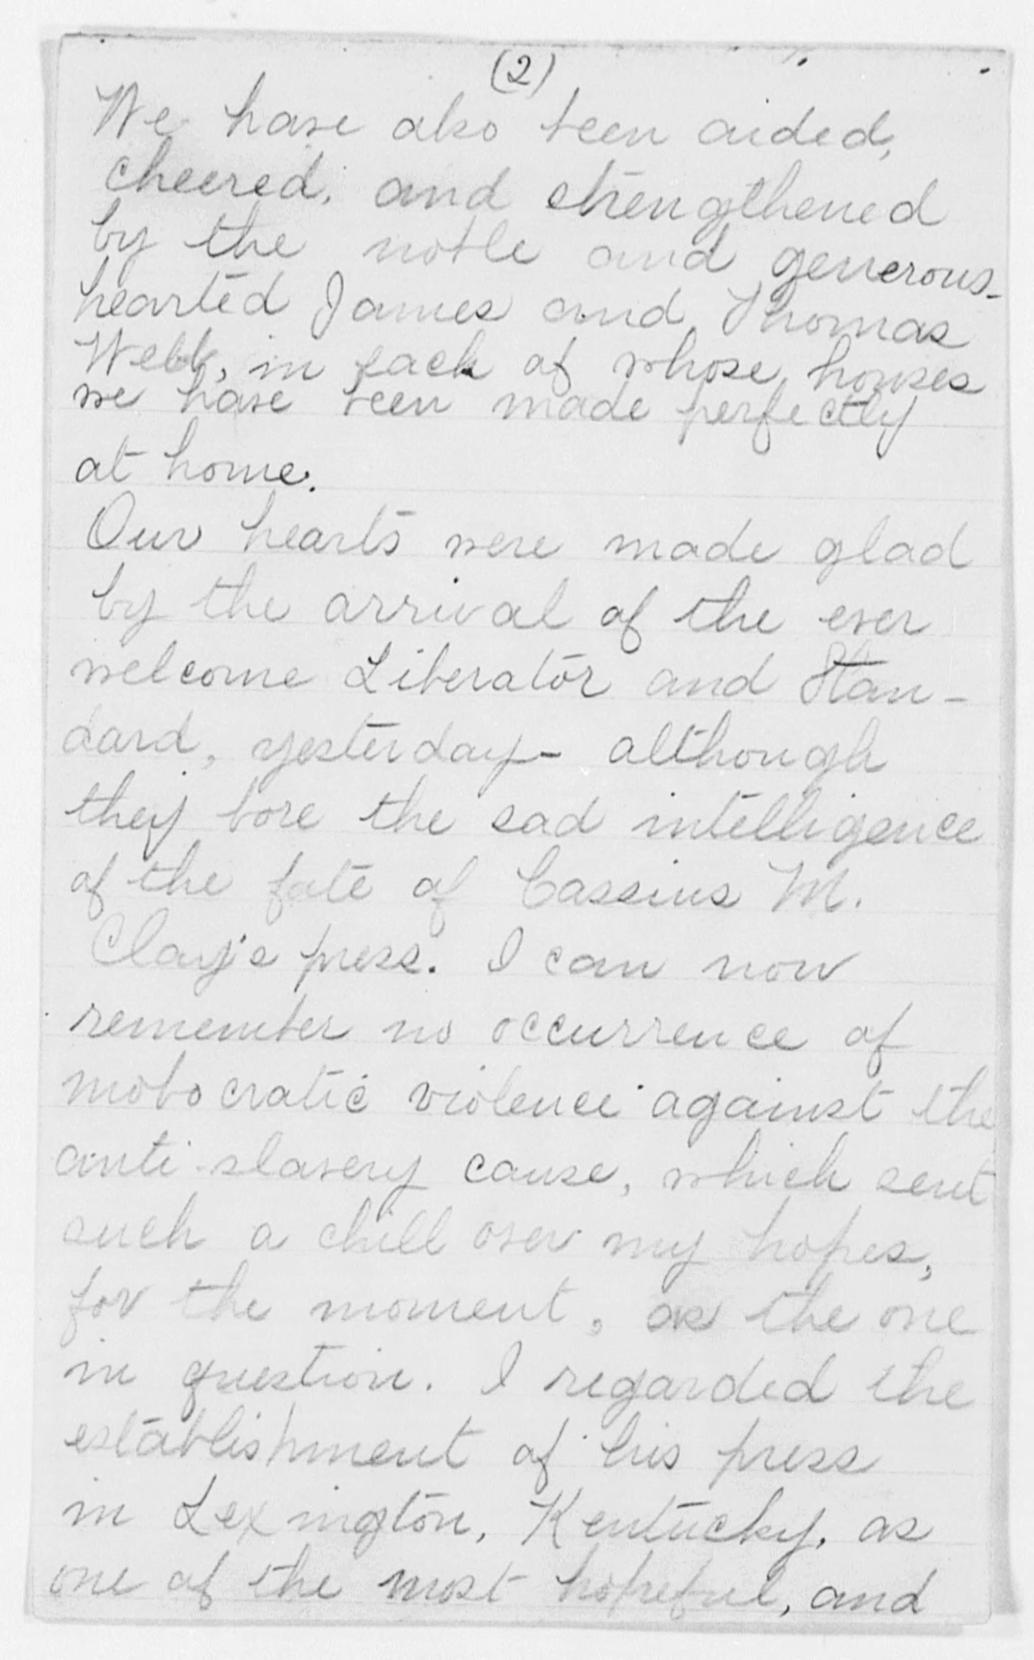 (2)
We have also been aided,
cheered, and strengthened
by the noble and generous-
hearted James and Thomas
Webb, in each of whose houses
we have been made perfectly
at home.
Our hearts were made glad
by the arrival of the ever
welcome Liberator and Stan-
dard, yesterday- although
they bore the sad intelligence
of the fate of Cassius M.
Clay's press. I can now
remember no occurrence of
mobocratic violence against the
anti-slavery cause, which sent
such a chill over my hopes,
for the moment, as the one
in question. I regarded the
establishment of his press
in Lexington, Kentucky, as
one of the most hopeful, and